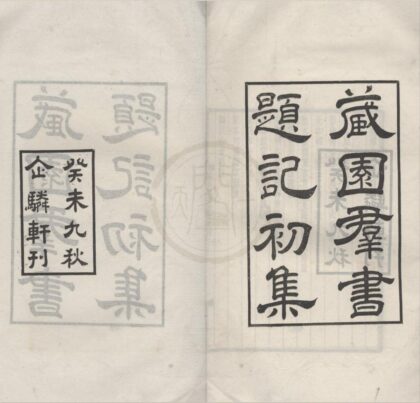 藏園羣書
題記初集
癸未九秋
企驎軒刊